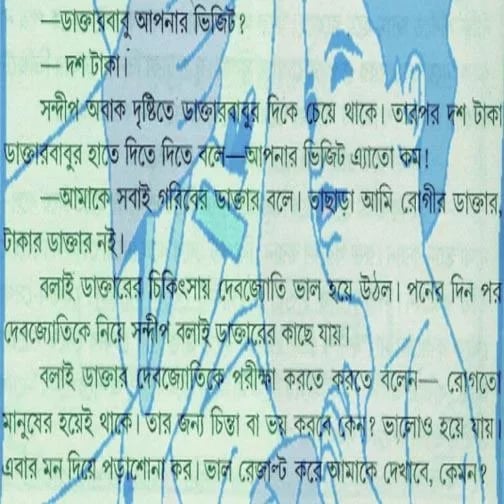 —ডাক্তারবাবু আপনার ভিজিট?
— দশ টাকা।
সন্দীপ অবাক দৃষ্টিতে ডাক্তারবাবুর দিকে চেয়ে থাকে। তারপর দশ টাকা
ডাক্তারবাবুর হাতে দিতে দিতে বলে—আপনার ভিজিট এ্যাতো কম!
—আমাকে সবাই গরিবের ডাক্তার বলে। তাছাড়া আমি রোগীর ডাক্তার,
টাকার ডাক্তার নই।
বলাই ডাক্তারের চিকিৎসায় দেবজ্যোতি ভাল হয়ে উঠল। পনের দিন পর
দেবজ্যোতিকে নিয়ে সন্দীপ বলাই ডাক্তারের কাছে যায়।
বলাই ডাক্তার দেবজ্যোতিকে পরীক্ষা করতে করতে বলেন— রোগতো
মানুষের হয়েই থাকে। তার জন্য চিন্তা বা ভয় করবে কেন? ভালোও হয়ে যায়।
এবার মন দিয়ে পড়াশোনা কর। ভাল রেজাল্ট করে আমাকে দেখাবে, কেমন?